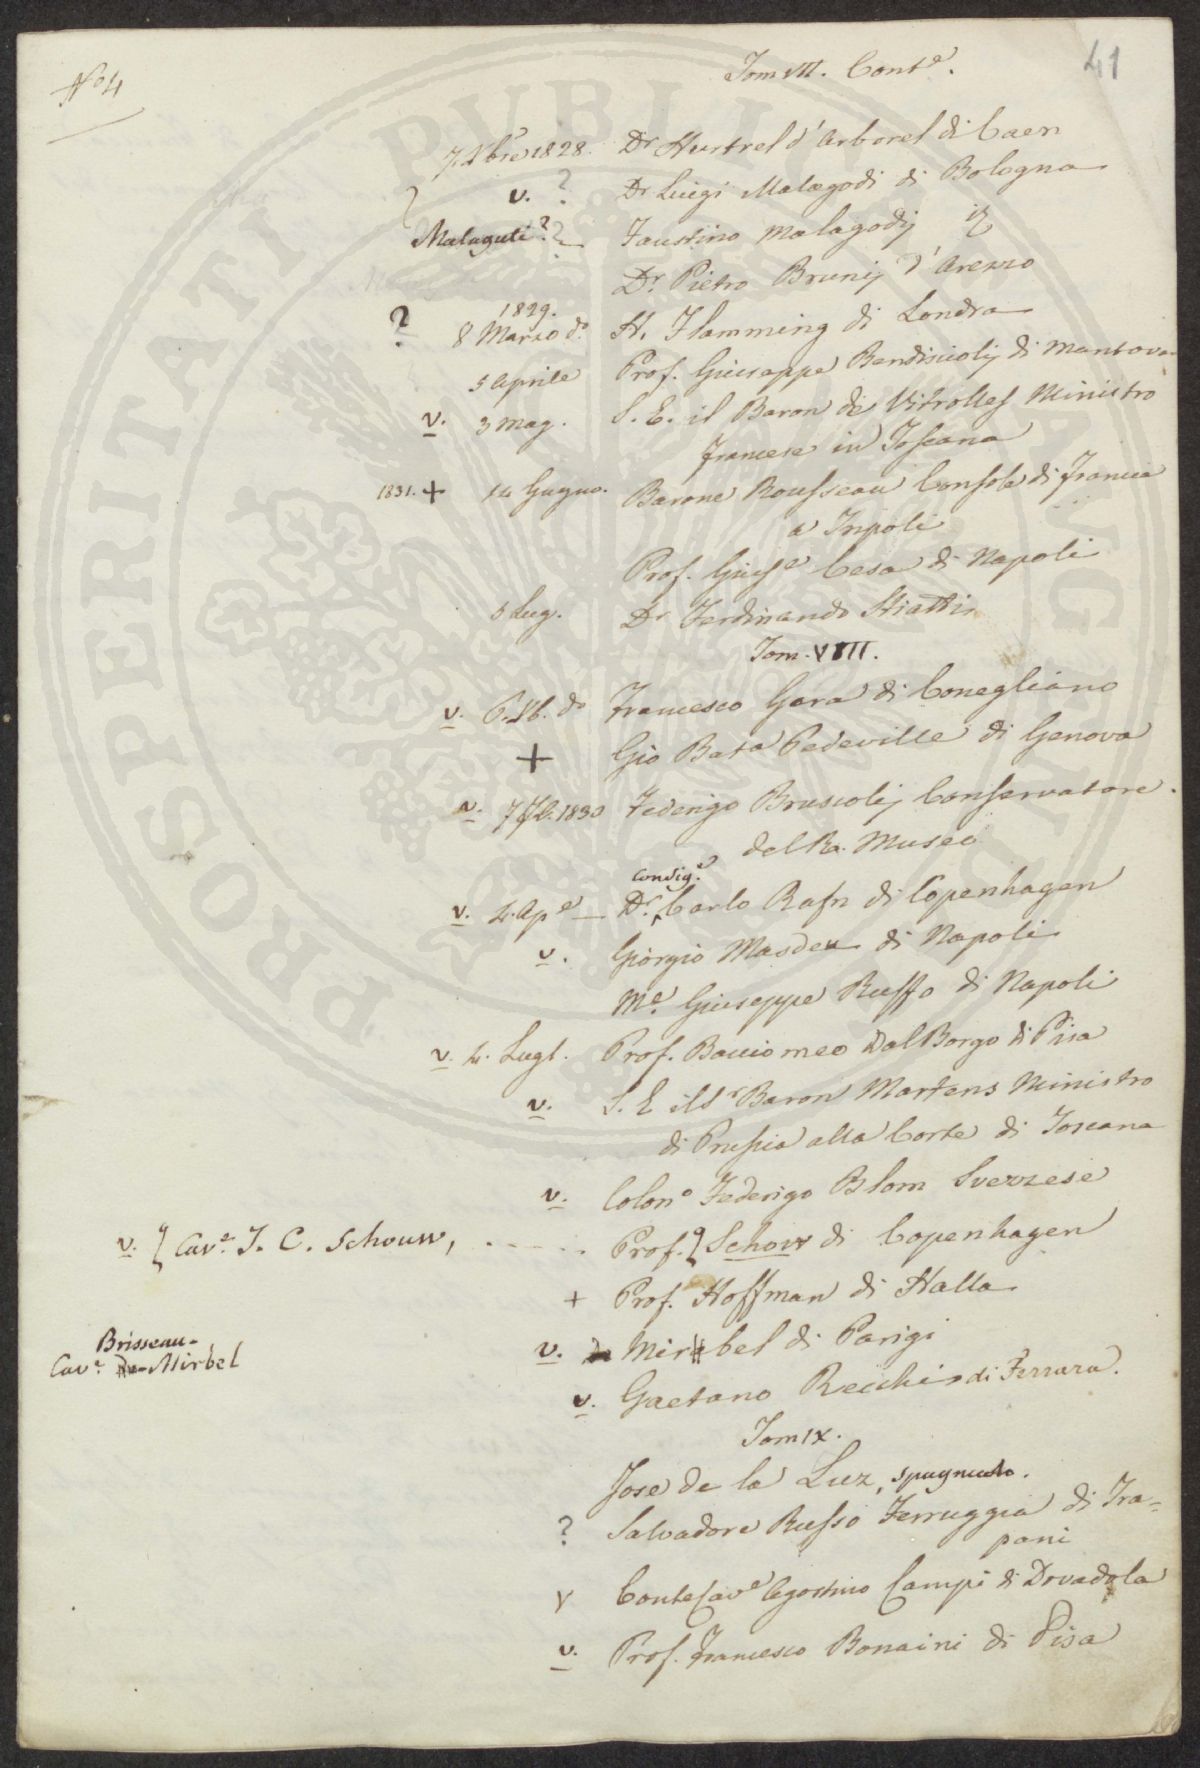 41
N° 4
Tom VII. Cont.e
7.4bre 1828. Dr Hurtrel d'Arborel di Caen
v. ? Dr Luigi Malagodi di Bologna
Malaguti?? Faustino Malagodij id
Dr. Pietro Brunij d'Arezzo
1829.
? 8 Marzo do. H. Flamming di Londra
5 Aprile Prof. Giuseppe Bendisciolij di Mantova
v. 3 Mag. S. E. il Baron de Vitrolles Ministro
francese in Toscana
1831. + 14 Giugno. Barone Rousseau Console di francia
a Tripoli
Prof. Giuse Cesa di Napoli
5 Lug. Dr Ferdinando Hiattis
Tom. VIII.
v. 6.9b. do Francesco Gera di Conegliano
+ Gio Bata Pedeville di Genova
v. 7 1830 Federigo Bruscolij Conservatore
del R. Museo
Consig.e
v. 4. Ape Dr. Carlo Rafn di Copenhagen
v. Giorgio Masdeu di Napoli
Me. Giuseppe Ruffo di Napoli
v. 4. Lugl. Prof. Bacciomeo Dal Borgo di Pisa
v. S. E il Sr Baron Martens Ministro
di Prussia alla Corte di Toscana
v. Colon.o Federigo Blom Svezzese
v. Cav.e J. C. Schouw, ...... Prof. Schow di Copenhagen
+ Prof. Hoffman di Halla
Brisseau-
Cav.e De-Mirbel
v. Mirbel di Parigi
v. Gaetano Recchi di Ferrara.
Tom IX.
Jose de la Luz, spagnuolo.
? Salvadore Russo Ferruggia di Tra=
pani
v Conte Cave Agostino Campi di Dovadola
v. Prof. Francesco Bonaini di Pisa
PROSPERITATI PUBLICAE AUGENDAE